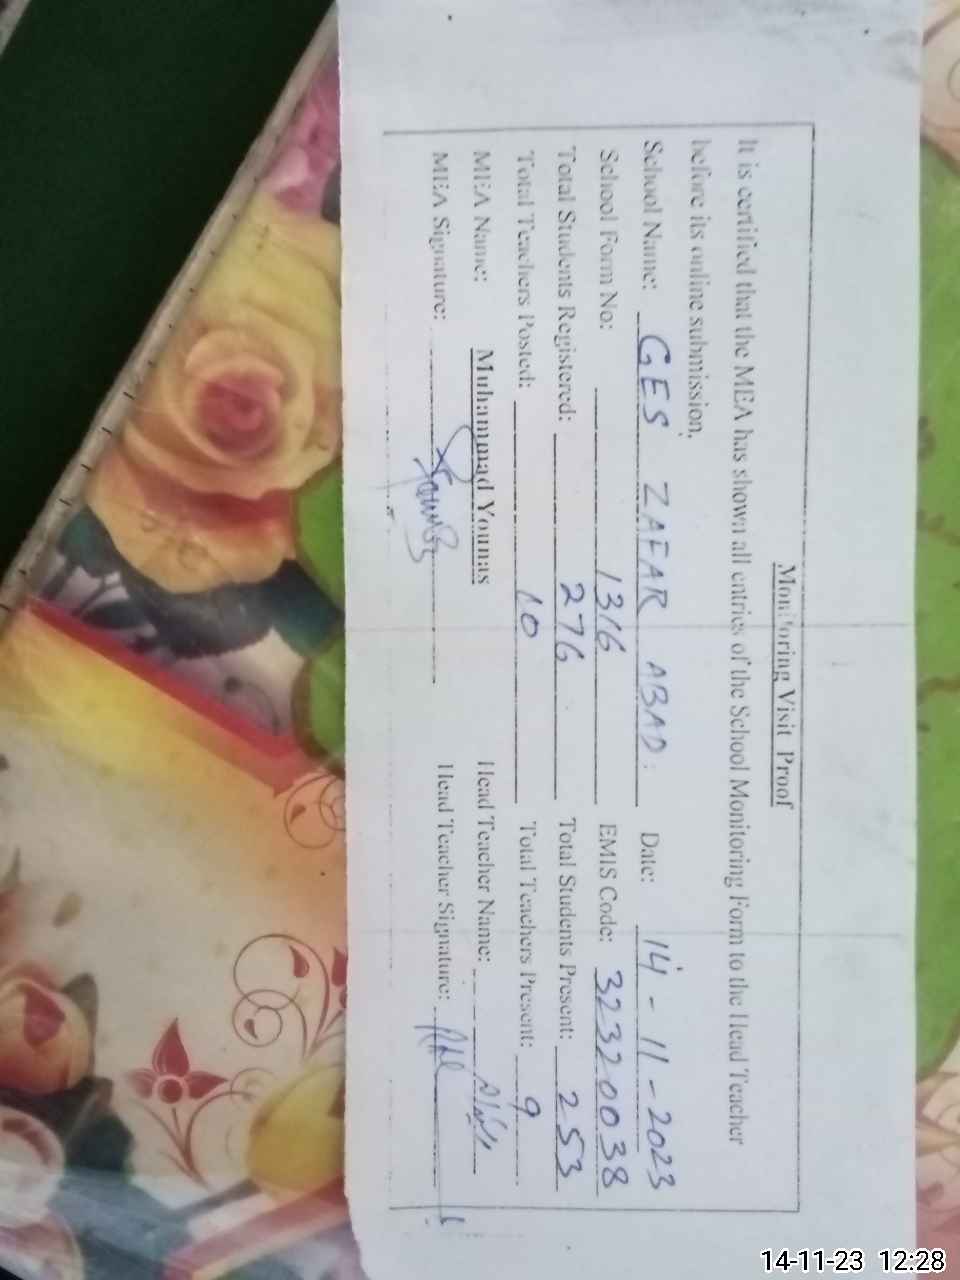 Monitoring Visit Proof
It is certified that the MEA has shown all entries of the School Monitoring Form to the Head Teacher
before its online submission.
School Name: GES ZAFAR ABAD. Date: 14-11-2023
School Form No: 1316 EMIS Code: 32320038
Total Students Registered: 276 Total Students Present: 253
Total Teachers Posted: 10 Total Teachers Present: 9
MEA Name: Muhammad Younas Head Teacher Name:
MEA Signature: Head Teacher Signature:
14-11-23 12:28